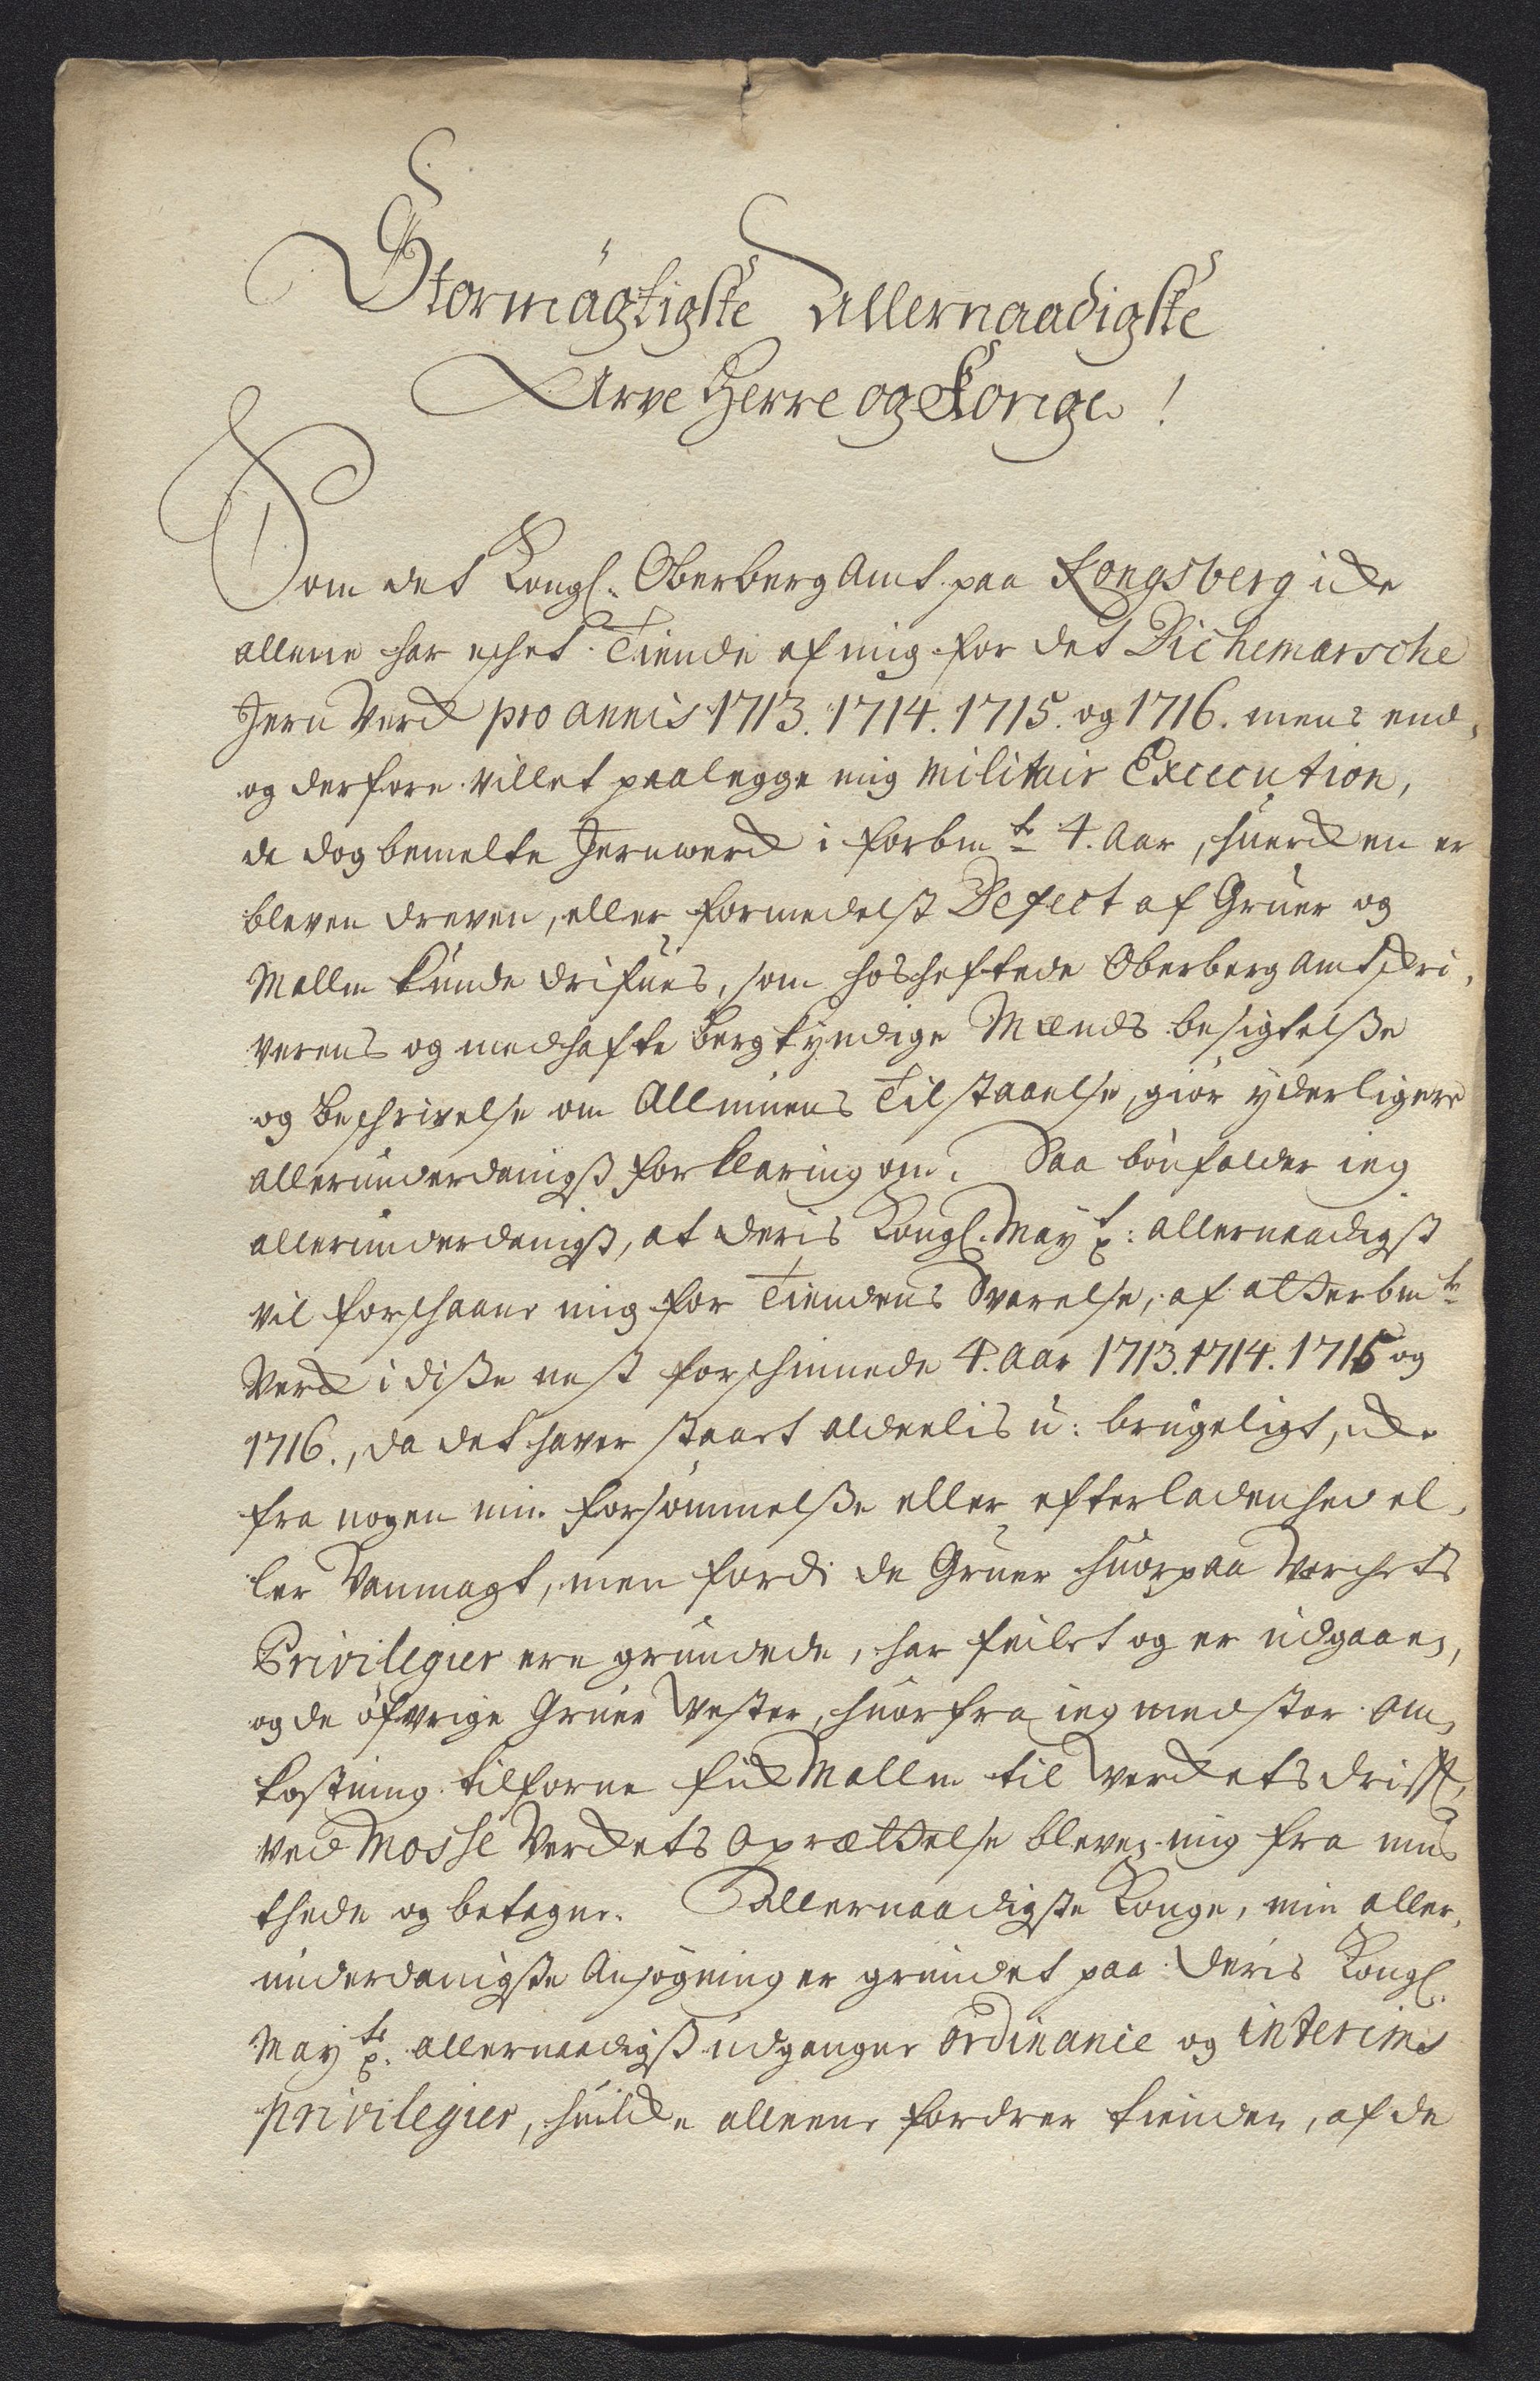 Stormägtigste Allernaadigste
Arve Herre og Konge!
Som det Kongl: Oberberg Amt paa Kongsberg icke
allene har eschet Tiende af mig for det Dichemarsche
Jern Verck pro annis 1713. 1714. 1715. og 1716. mens end,
og derfore villet paalegge mig militair Execution,
da dog bemelte Jernwerck i forbmte 4. Aar, huercken er
bleven dreven, eller formedelst Defect af Gruer og
Mallm kunde drifues, som hos heftede Oberberg Amtskri,
verens og medhafte bergkyndige Mænds besigtelsse
og beschrivelse om Allmuens Tilstaaelse, giör yderligere
allerunderdanigst forklaring om. Saa bönfalder ieg
allerunderdanigst, at deris Kongl. Mayt: allernaadigst
vil forschaane mig for Tiendens Svarelse, af atterbmte
Verck i disse nest forschinnede 4. Aar 1713. 1714. 1715 og
1716., da det haver staaet aldeelis u: brugeligt, icke
fra nogen min forsömmelsse eller efterladenhed el,
ler Vanmagt, men fordi de Gruer huorpaa Verchets
Privilegier ere grundede, har feilet og er udgaaen,
og de öfvrige Gruer Vester, huorfra ieg med stor Om,
kostning tilforne fick Mallm til Verckets drifft,
ved Mosse Verckets Oprættelse bleven mig fra mus
thede og betagne. Allernaadigste Konge, min aller,
underdanigste Ansögning er grundet paa deris Kongl.
Mayts allernaadigst udgangne ordinance og interims
privilegier, huilcke alleene fordrer tienden, af de